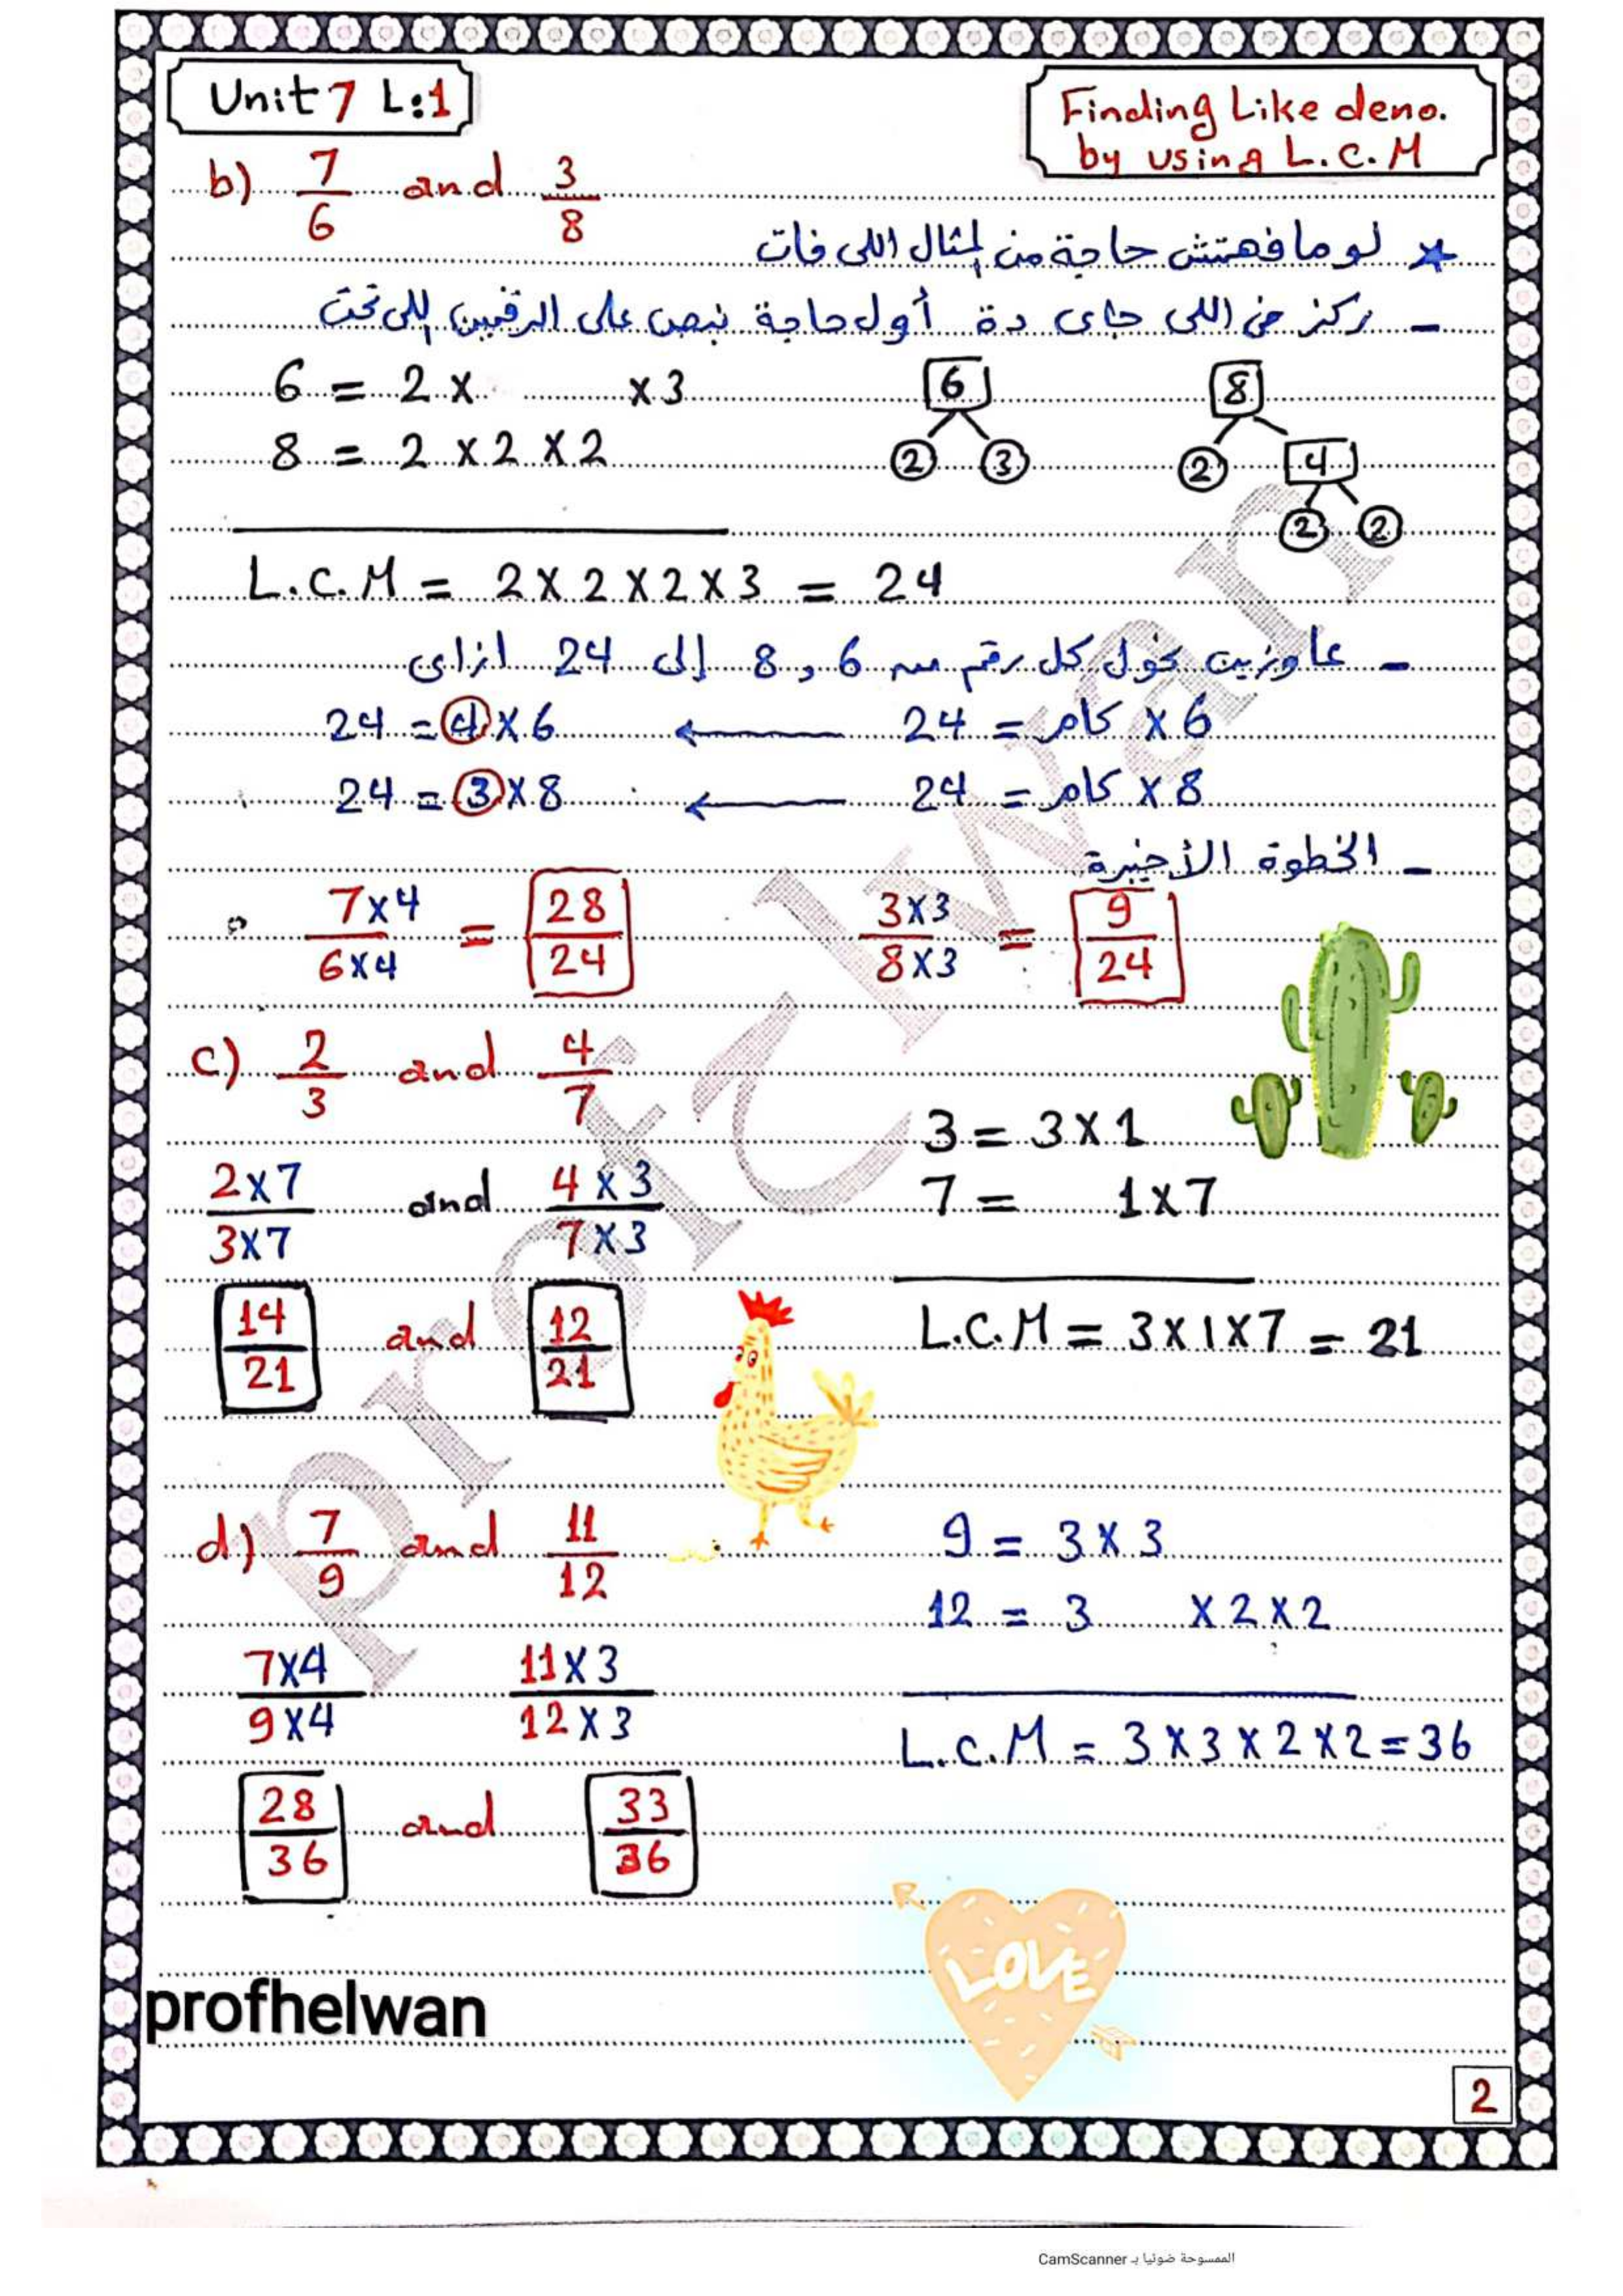 Unit 7 L:1
Finding Like deno.
by using L.C.M
b) 7/6 and 3/8
* لو ما فهمتش حاجة من المثال اللى فات
- ركز فى اللى جاى دة أول حاجة نبص على الرقمين اللى تحت
6 = 2 × × 3
8 = 2 × 2 × 2
6
2 3
8
2 4
2 2
L.C.M = 2 × 2 × 2 × 3 = 24
- عاوزين نحول كل رقم من 6 و 8 إلى 24 ازاى
6 × كام = 24 ← 6 × 4 = 24
8 × كام = 24 ← 8 × 3 = 24
- الخطوة الأخيرة
7×4/6×4 = 28/24 3×3/8×3 = 9/24
c) 2/3 and 4/7
3 = 3 × 1
7 = 1 × 7
2×7/3×7 and 4×3/7×3
L.C.M = 3 × 1 × 7 = 21
14/21 and 12/21
d) 7/9 and 11/12
9 = 3 × 3
12 = 3 × 2 × 2
7×4/9×4 11×3/12×3
L.C.M = 3 × 3 × 2 × 2 = 36
28/36 and 33/36
LOVE
profhelwan
profhelwan
2
الممسوحة ضوئيا بـ CamScanner